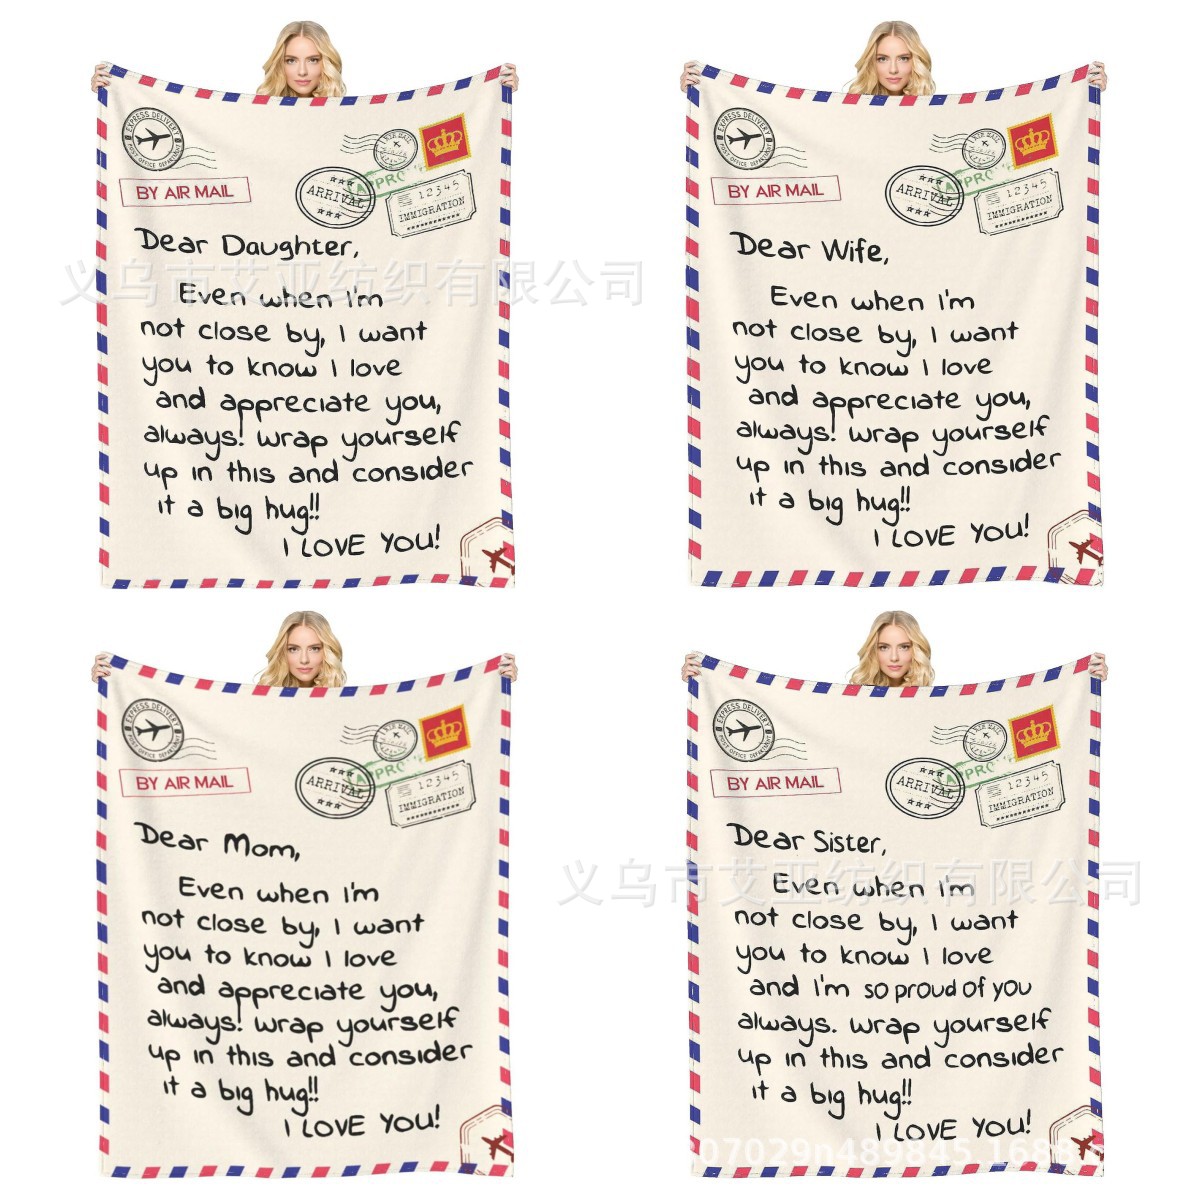 EXPRESS DELIVERY
POST OFFICE DEPARTMENT
BY AIR MAIL
AIR MAIL
ARRIVAL
12345
IMMIGRATION
Dear Daughter,
Even when I'm
not close by, I want
you to know I love
and appreciate you,
always! Wrap yourself
up in this and consider
it a big hug!!
I LOVE YOU!
EXPRESS DELIVERY
POST OFFICE DEPARTMENT
BY AIR MAIL
AIR MAIL
ARRIVAL
12345
IMMIGRATION
Dear Wife,
Even when I'm
not close by, I want
you to know I love
and appreciate you,
always! Wrap yourself
up in this and consider
it a big hug!!
I LOVE YOU!
义乌市艾亚纺织有限公司
EXPRESS DELIVERY
POST OFFICE DEPARTMENT
BY AIR MAIL
AIR MAIL
ARRIVAL
12345
IMMIGRATION
Dear Mom,
Even when I'm
not close by, I want
you to know I love
and appreciate you,
always! Wrap yourself
up in this and consider
it a big hug!!
I LOVE YOU!
EXPRESS DELIVERY
POST OFFICE DEPARTMENT
BY AIR MAIL
AIR MAIL
ARRIVAL
12345
IMMIGRATION
Dear Sister,
Even when I'm
not close by, I want
you to know I love
and I'm so proud of you
always. Wrap yourself
up in this and consider
it a big hug!!
I LOVE YOU!
义乌市艾亚纺织有限公司